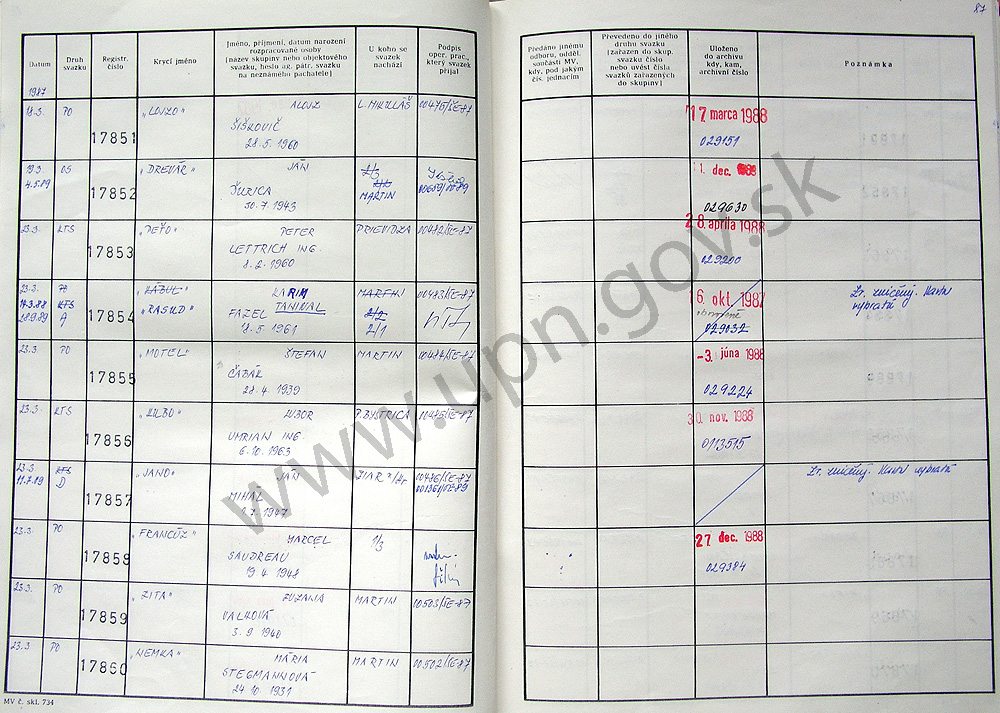 87
Datum
Druh svazku
Registr. číslo
Krycí jméno
Jméno, příjmení, datum narození
rozpracované osoby
(název skupiny nebo objektového
svazku, heslo ag. pátr. svazku
na neznámého pachatele)
U koho se
svazek
nachází
Podpis
oper. prac.,
který svazek
přijal
Předáno jinému
odboru, odděl.
součásti MV,
kdy, pod jakým
čís. jednacím
Převedeno do jiného
druhu svazku
(zařazen do skup.
svazku číslo
nebo uvést čísla
svazků zařazených
do skupiny)
Uloženo
do archivu
kdy, kam,
archivní číslo
Poznámka
1987
18.3. PO 17851 „LOJZO" ALOJZ L. MIKULÁŠ 00475/ŠE-87 17 marca 1988
ŠIŠKOVIČ 029151
28.5. 1960
19.3. OS 17852 „DREVÁR" JÁN 11. dec.
4.5.89 ĎURICA MARTIN 00659/ŠE-89 029630
30.7. 1943
23.3. KTS 17853 „PEŤO" PETER PRIEVIDZA 00482/ŠE-87 28. apríla 1988
LETTRICH ING. 029200
8.2. 1960
23.3. PO 17854 „KÁBUL" KARIM MARTIN 00483/ŠE-87 16. okt. 1987 Zv. zničený. Karta
KTS „RASUD" TANINAL 2/2 vybratá
A FAZEL 2/1 029032
18.5. 1961
23.3. PO 17855 „MOTEL" ŠTEFAN MARTIN 00484/ŠE-87 -3. júna 1988
ČABÁK 029224
28.4. 1939
23.3. KTS 17856 ĽUBOR P. BYSTRICA 00485/ŠE-87 30. nov. 1988
UMRIAN ING 0113515
6.10. 1963
23.3. KTS 17857 „JANO" JÁN ŽIAR n/H 00486/ŠE-87 Zv. zničený. Karta vybratá
11.7.89 D MIHÁL 001361/ŠE-89
1947
23.3. PO 17858 „FRANCÚZ" MARCEL 1/3 27 dec. 1988
SAUDREAU 029384
19.4. 1948
23.3. PO 17859 „ZITA" ZUZANA MARTIN 00503/ŠE-87
VALKOVÁ
3.9. 1940
23.3. PO 17860 „NEMKA" MÁRIA MARTIN 00502/ŠE-87
STEGMANNOVÁ
24.10. 1931
MV č. skl. 734
www.upn.gov.sk